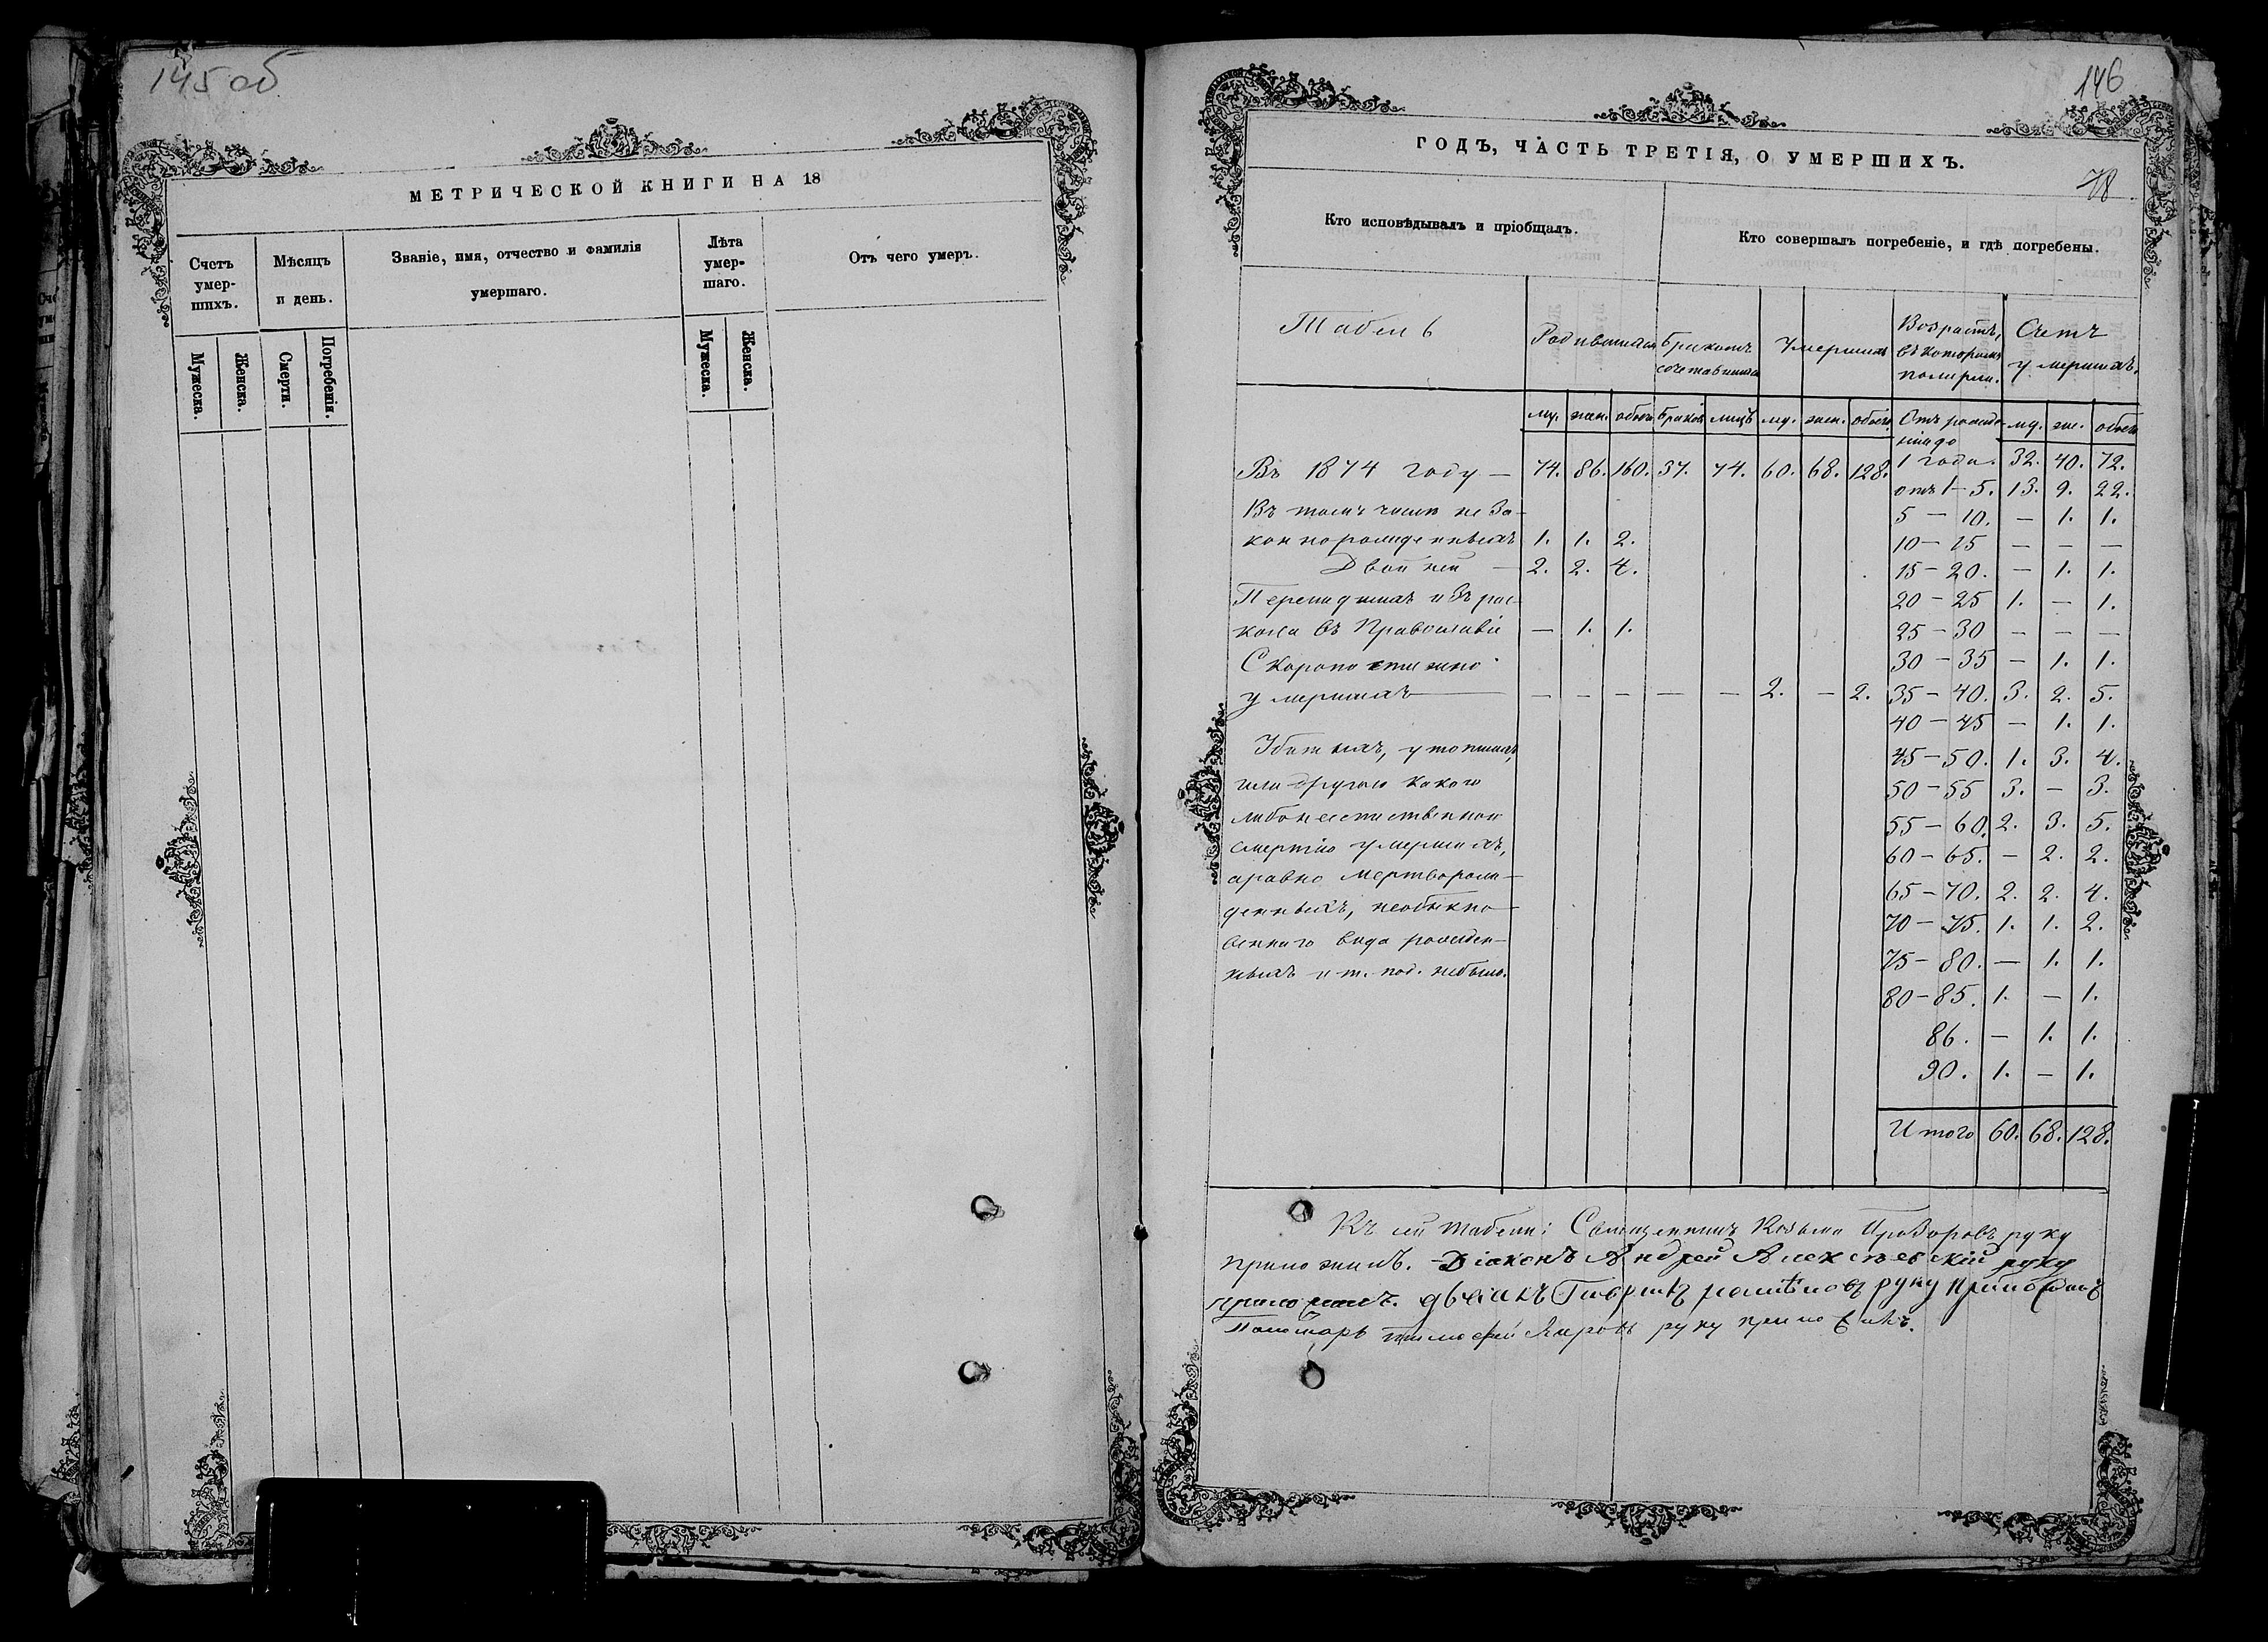 145 об
МЕТРИЧЕСКОЙ КНИГИ НА 18
Счетъ умер-шихъ.
Мѣсяцъ и день.
Званіе, имя, отчество и фамилія умершаго.
Лѣта умер-шаго.
Отъ чего умеръ.
Мужеска.
Женска.
Смерти.
Погребенія.
Мужеска.
Женска.
146
ГОДЪ, ЧАСТЬ ТРЕТІЯ, О УМЕРШИХЪ.
78
Кто исповѣдывалъ и пріобщалъ.
Кто совершалъ погребеніе, и гдѣ погребены.
Табель
Родившихся
Бракомъ сочетавшихся
Умершихъ
Возрастъ, въ которомъ померли.
Счетъ умершихъ.
му. жен. обоего браковъ лицъ му. жен. обоего Отъ рожде- му. же. обоего
нія до
Въ 1874 году — 74. 86. 160. 37. 74. 60. 68. 128. 1 года. 32. 40. 72.
отъ 1 — 5. 13. 9. 22.
Въ томъ числѣ не за-
5 — 10. — 1. 1.
коннорожденныхъ 1. 1. 2.
10 — 15 — — —
Двойней — 2. 2. 4.
15 — 20. — 1. 1.
Перешедшихъ изъ рас-
20 — 25 1. — 1.
кола въ Православіе — 1. 1.
25 — 30 — — —
Скоропостижно
30 — 35 — 1. 1.
умершихъ — — — — — 2. — 2. 35 — 40. 3. 2. 5.
40 — 45 — 1. 1.
Убитыхъ, утопшихъ,
45 — 50. 1. 3. 4.
или другою какою
50 — 55 3. — 3.
либо неестественною
55 — 60. 2. 3. 5.
смертію умершихъ,
60 — 65. — 2. 2.
а равно мертворож-
65 — 70. 2. 2. 4.
денныхъ, необыкно-
70 — 75. 1. 1. 2.
веннаго вида рожден-
75 — 80. — 1. 1.
ныхъ и т. под. небыло.
80 — 85. 1. — 1.
86. — 1. 1.
90. 1. — 1.
Итого 60. 68. 128.
Къ сей табели: Священникъ Козьма Прозоровъ руку
приложилъ. Діаконъ Андрей Алексѣевскій руку
приложилъ. дьячекъ руку приложилъ
Пономарь Тимофей руку приложилъ.